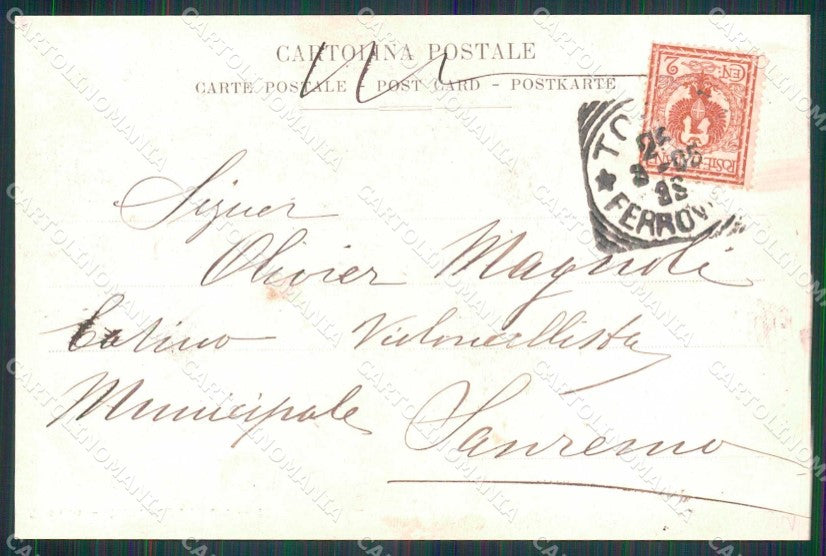 CARTOLINA POSTALE
CARTE POSTALE - POST CARD - POSTKARTE
CEN: 2
POSTE
TO
25
3 05
8S
★ FERROV
Signor
Olivier Magnoli
Violoncellista
Municipale Sanremo
CARTOLINOMANIA